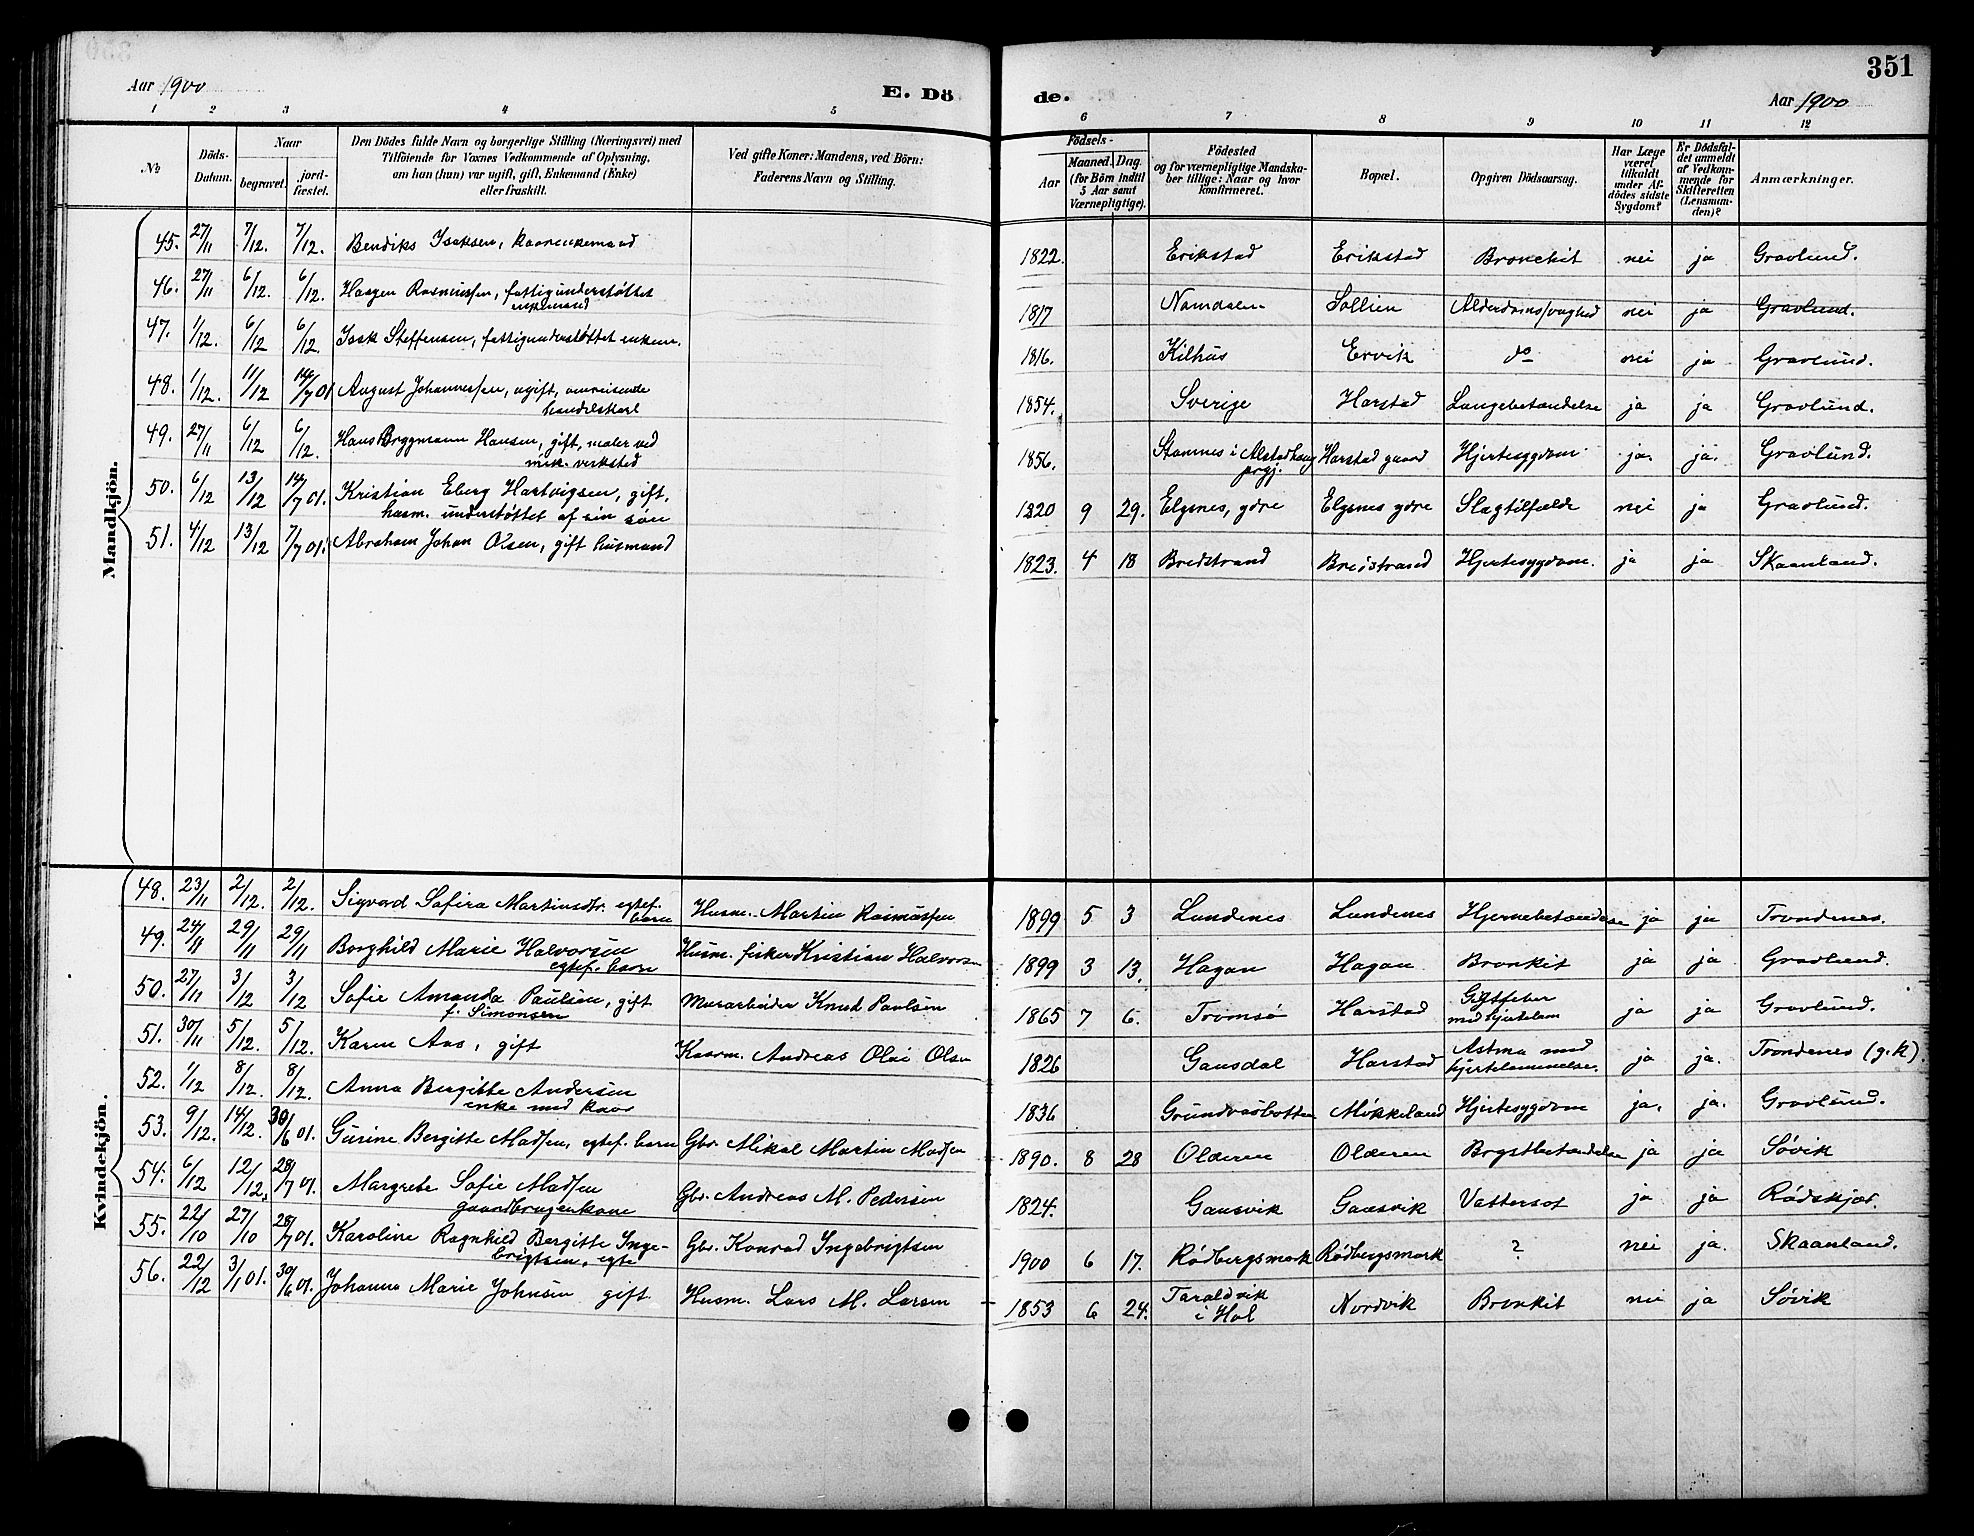 Aar 1900
E. Dö
de.
351
Aar 1900
1 2 3 4 5 6 7 8 9 10 11 12
No
Döds-Datum.
Naar
begravet.
jord-fæstet.
Den Dödes fulde Navn og borgerlige Stilling (Næringsvei) med
Tilföiende for Voxnes Vedkommende af Oplysning,
om han (hun) var ugift, gift, Enkemand (Enke)
eller fraskilt.
Ved gifte Koner: Mandens, ved Börn:
Faderens Navn og Stilling.
Födsels-
Aar
Maaned. Dag.
(for Börn indtil
5 Aar samt
Værnepligtige).
Födested
og for værnepligtige Mandska-
ber tillige: Naar og hvor
konfirmeret.
Bopæl.
Opgiven Dödsaarsag.
Har Læge
været
tilkaldt
under Af-
dödes sidste
Sygdom?
Er Dödsfal-
det anmeldt
af Vedkom-
mende for
Skifteretten
(Lensman-
den)?
Anmærkninger.
Mandkjön.
45. 27/11 7/12. 7/12. Bendiks Isaksen, kaarenkemand 1822. Erikstad Erikstad Bronchit nei ja Gravlund.
46. 27/11 6/12. 6/12. Haagen Rasmussen, fattigunderstøttet
enkemand 1817 Namdalen Sollien Alderdomssvaghed nei ja Gravlund.
47. 1/12. 6/12 6/12. Isak Steffensen, fattigunderstøttet enkem. 1816. Kilhus Ervik do nei ja Gravlund.
48. 1/12. 11/12 14/7 01 August Johannessen, ugift, omreisende
handelskarl 1854. Sverige Harstad Lungebetændelse ja ja Gravlund.
49. 27/11 6/12 6/12. Hans Bryggmann Hansen, gift, maler ved
mek. verksted 1856. Stamnes i Alstadhaug
prgj. Harstad gaard Hjertesygdom ja. ja. Gravlund.
50. 6/12 13/12 14/7 01. Kristian Eberg Hartvigsen, gift,
husm. understøttet af sin søn 1820 9 29. Elgsnes, ydre Elgsnes ydre Slagtilfælde nei ja Gravlund.
51. 4/12 13/12 7/7 01. Abraham Johan Olsen, gift husmand 1823. 4 18 Bredstrand Breistrand Hjertesygdom. ja ja Skaanland.
Kvindekjön.
48. 23/11 2/12. 2/12. Sigvard Safira Martinsdtr. egtef.
barn Husm. Martin Rasmussen 1899 5 3 Lundenes Lundenes Hjernebetændelse ja ja Trondenes.
49. 24/11 29/11 29/11 Borghild Marie Halvorsen
egtef. barn Husm. fisker Kristian Halvorsen 1899 3 13. Hagan Hagan Bronkit ja ja Gravlund.
50. 27/11 3/12 3/12 Sofie Amanda Paulsen, gift
f. Simonsen Murarbeider Knud Paulsen 1865 7 6. Tromsø Harstad Gigtfeber
med hjertelam ja ja Gravlund.
51. 30/11 5/12. 5/12. Karen Aas, gift Kaarm. Andreas Olai Olsen 1826 Gausdal Harstad Astma med
hjertelammelse. ja ja. Trondenes (g.k).
52. 1/12 8/12. 8/12. Anna Bergitte Andersen
enke med kaar 1836 Grundvasbotten Møkkeland Hjertesygdom ja. ja. Gravlund.
53. 9/12. 14/12. 30/6 01. Gurine Bergitte Madsen, egtef. barn Gbr. Mikal Martin Madsen 1890. 8 28 Olderen Olderen Brystbetændelse ja ja Søvik
54. 6/12 12/12. 28/7 01. Margrete Sofie Madsen
gaardbrugerkone Gbr. Andreas M. Pedersen 1824. Gausvik Gausvik Vattersot ja ja Rødskjær.
55. 22/10 27/10 28/7 01. Karoline Ragnhild Bergitte Inge-
brigtsen, egte Gbr. Konrad Ingebrigtsen 1900 6 17. Rødbergsmark Rødbergsmark ? nei ja. Skaanland.
56. 22/12 3/1 01. 30/6 01. Johanna Marie Johnsen gift Husm. Lars M. Larsen 1853 6 24. Taraldvik
i Hol Nordvik Bronkit nei ja Søvik